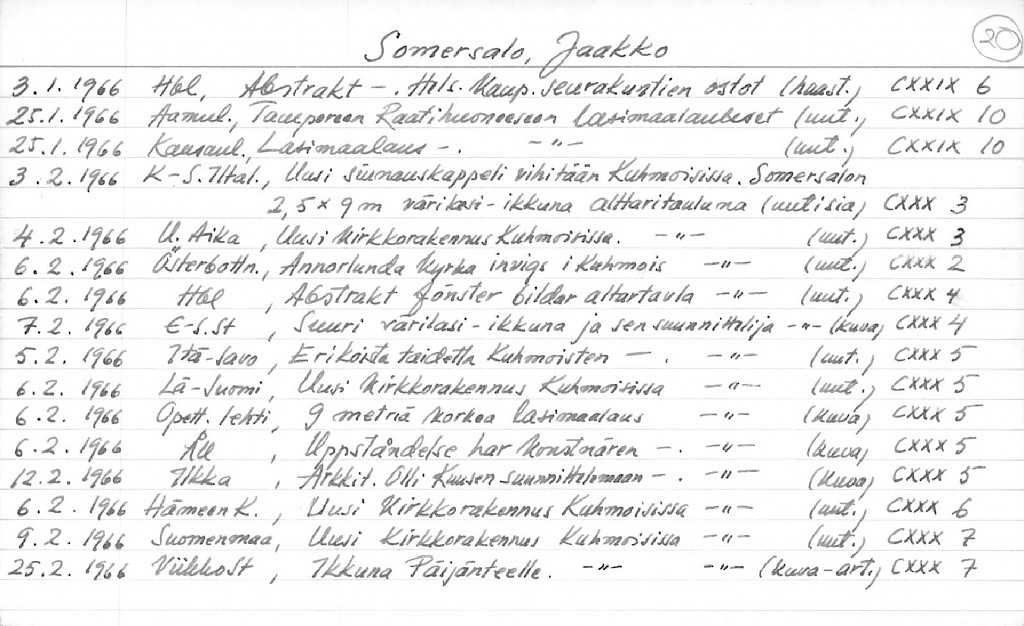 20
Somersalo, Jaakko
3.1.1966 Hbl, Abstrakt -. Hels. Kaup. seurakuntien ostot (haast.) CXXIX 6
25.1.1966 Aamul., Tampereen Raatihuoneeseen lasimaalaukset (uut.) CXXIX 10
25.1.1966 Kansanl., Lasimaalaus -. -"- (uut.) CXXIX 10
3.2.1966 K-S.Iltal., Uusi siunauskappeli vihitään Kuhmoisissa. Somersalon
2,5 x 9 m värilasi-ikkuna alttaritauluna (uutisia) CXXX 3
4.2.1966 U. Aika, Uusi Kirkkorakennus Kuhmoisissa. -"- (uut.) CXXX 3
6.2.1966 Österbottn., Annorlunda Kyrka invigs i Kuhmois -"- (uut.) CXXX 2
6.2.1966 Hbl, Abstrakt fönster bildar altartavla -"- (uut.) CXXX 4
7.2.1966 E-S.St, Suuri värilasi-ikkuna ja sen suunnittelija -"- (kuva) CXXX 4
5.2.1966 Itä-Savo, Erikoista taidetta Kuhmoisten -. -"- (uut.) CXXX 5
6.2.1966 Lä-Suomi, Uusi Kirkkorakennus Kuhmoisissa -"- (uut.) CXXX 5
6.2.1966 Opett. lehti, 9 metriä korkea lasimaalaus -"- (kuva) CXXX 5
6.2.1966 ÅU, Uppståndelse har konstnären -. -"- (kuva) CXXX 5
12.2.1966 Ilkka, Arkkit. Olli Kuusen suunnitteleman -. -"- (kuva) CXXX 5
6.2.1966 Hämeen K., Uusi Kirkkorakennus Kuhmoisissa -"- (uut.) CXXX 6
9.2.1966 Suomenmaa, Uusi Kirkkorakennus Kuhmoisissa -"- (uut.) CXXX 7
25.2.1966 ViikkoSt, Ikkuna Päijänteelle. -"- -"- (kuva-art.) CXXX 7